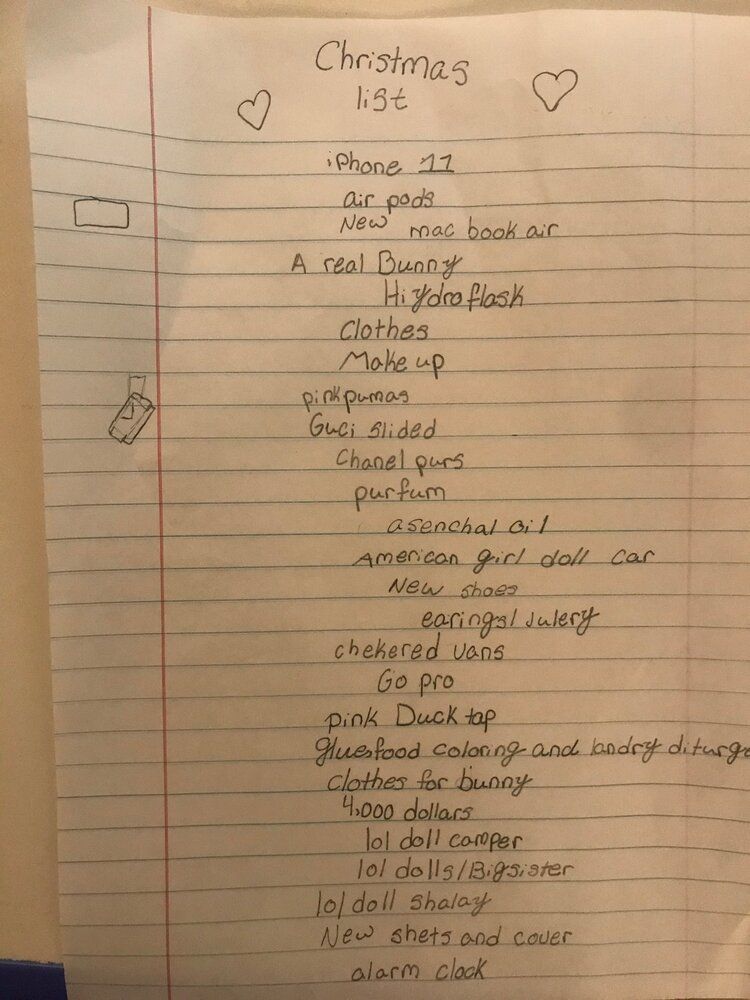 Christmas
list
iPhone 11
air pods
New mac book air
A real Bunny
Hiydroflask
Clothes
Make up
pink pumas
Guci slided
Chanel purs
purfum
asenchal oil
American girl doll car
New shoes
earings/Julery
chekered vans
Go pro
pink Duck tap
glue, food coloring and landry diturge
Clothes for bunny
4,000 dollars
lol doll camper
lol dolls/Bigsister
lol doll shalay
New shets and cover
alarm clock